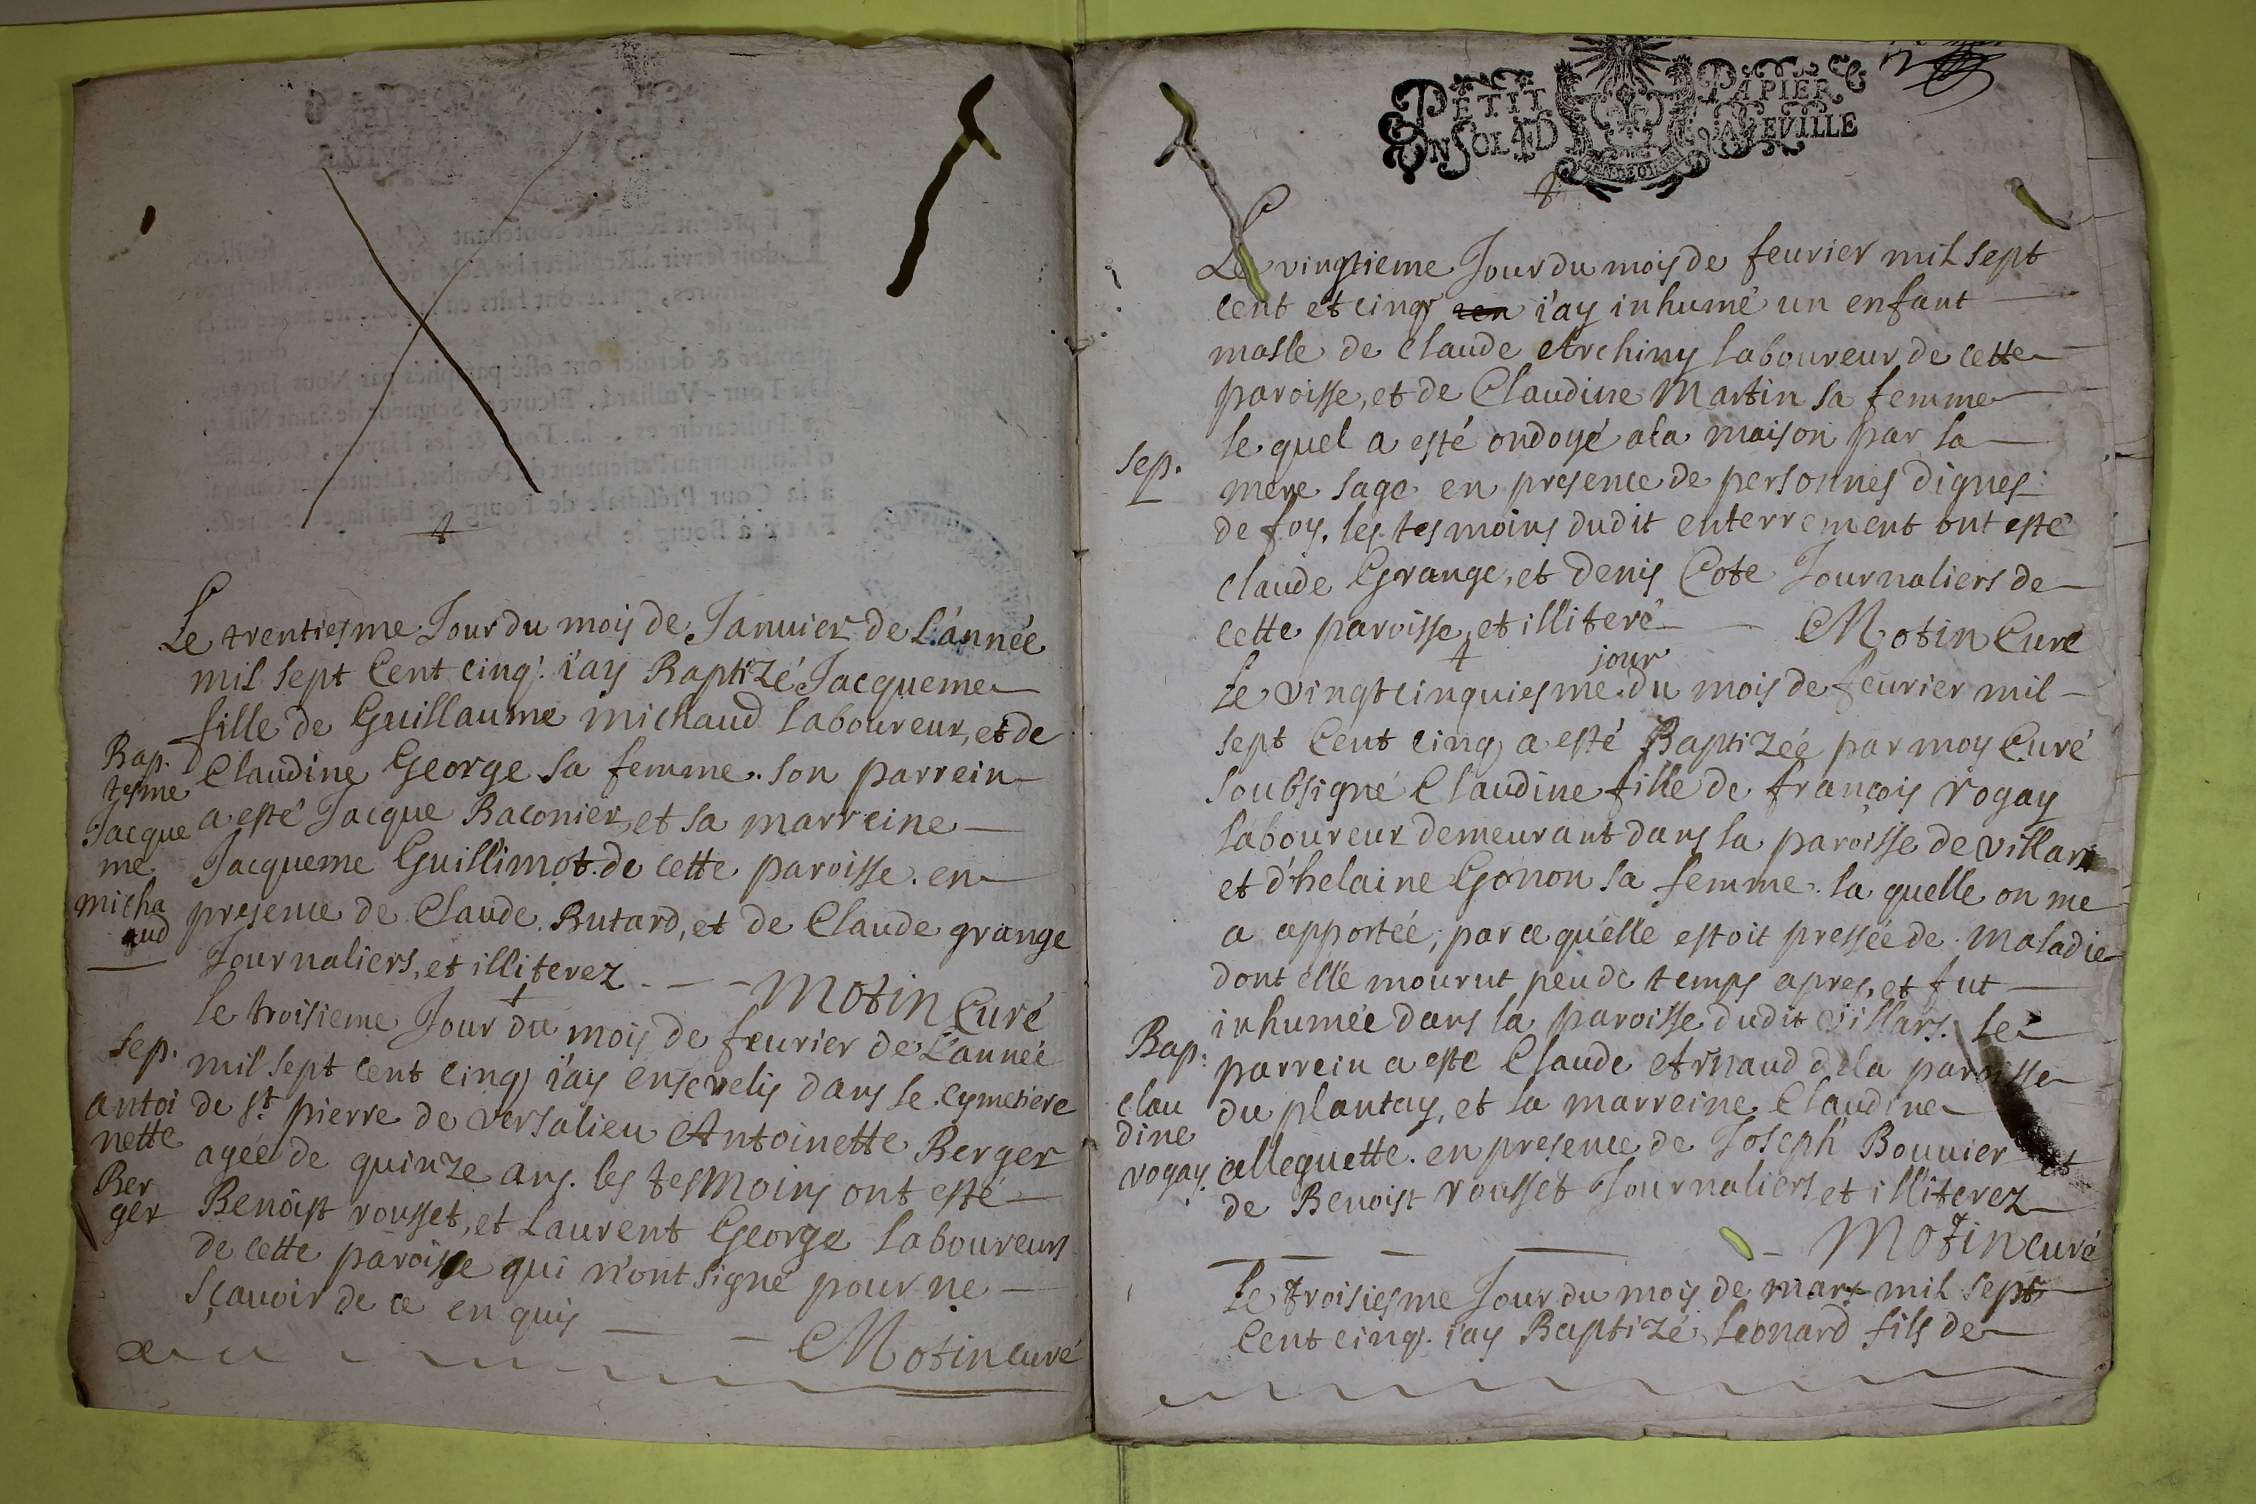 Le trentiesme Jour du mois de Januier de L'année
mil sept Cent cinq. i'ay Baptizé Jacqueme
fille de Guillaume michaud laboureur, et de
Claudine George sa femme. son parrein
a esté Jacque Baconier, et sa marreine
Jacqueme Guillimot de cette paroisse. en
presence de Claude Butard, et de Claude grange
Journaliers, et illiterez
Motin Curé
Bap.
tesme
Jacque
me
micha
aud
le troisieme Jour du mois de feurier de L'année
mil sept cent cinq i'ay enseuelis dans le cymetiere
de st. pierre de versalieu Antoinette Berger
agée de quinze ans. les tesmoins ont esté
Benoist rousset, et Laurent George laboureurs
de cette paroisse qui n'ont signé pour ne
sçauoir de ce enquis
Motin curé
sep.
antoi
nette
Ber
ger
PETIT PAPIER
UN SOL 4 D LA FEUILLE
Le vingtieme Jour du mois de feurier mil sept
cent et cinq i'ay inhumé un enfant
masle de Claude Archiny laboureur de cette
paroisse, et de Claudine Martin sa femme
le quel a esté ondoyé a la maison par la
mere sage en presence de personnes dignes
de foy. les tesmoins dudit enterrement ont esté
Claude Grange, et Denis Cote Journaliers de
cette paroisse, et illiteré
Motin Curé
sep.
Le vingtcinquiesme jour du mois de feurier mil
sept Cent cinq a esté Baptizée par moy Curé
soubsigné Claudine fille de françois rogay
laboureur demeurant dans la paroisse de villars
et d'helaine Gonon sa femme. la quelle on me
a apportée, par ce qu'elle estoit pressée de maladie
dont elle mourut peu de temps apres, et fut
inhumée dans la paroisse dudit villars. le
parrein a esté Claude Arnaud de la paroisse
du plantay, et la marreine Claudine
alleguette. en presence de Joseph Bouuier et
de Benoist rousset Journaliers et illiterez
Motin curé
Bap.
clau
dine
rogay.
Le troisiesme Jour du mois de mars mil sept
Cent cinq. i'ay Baptizé Leonard fils de